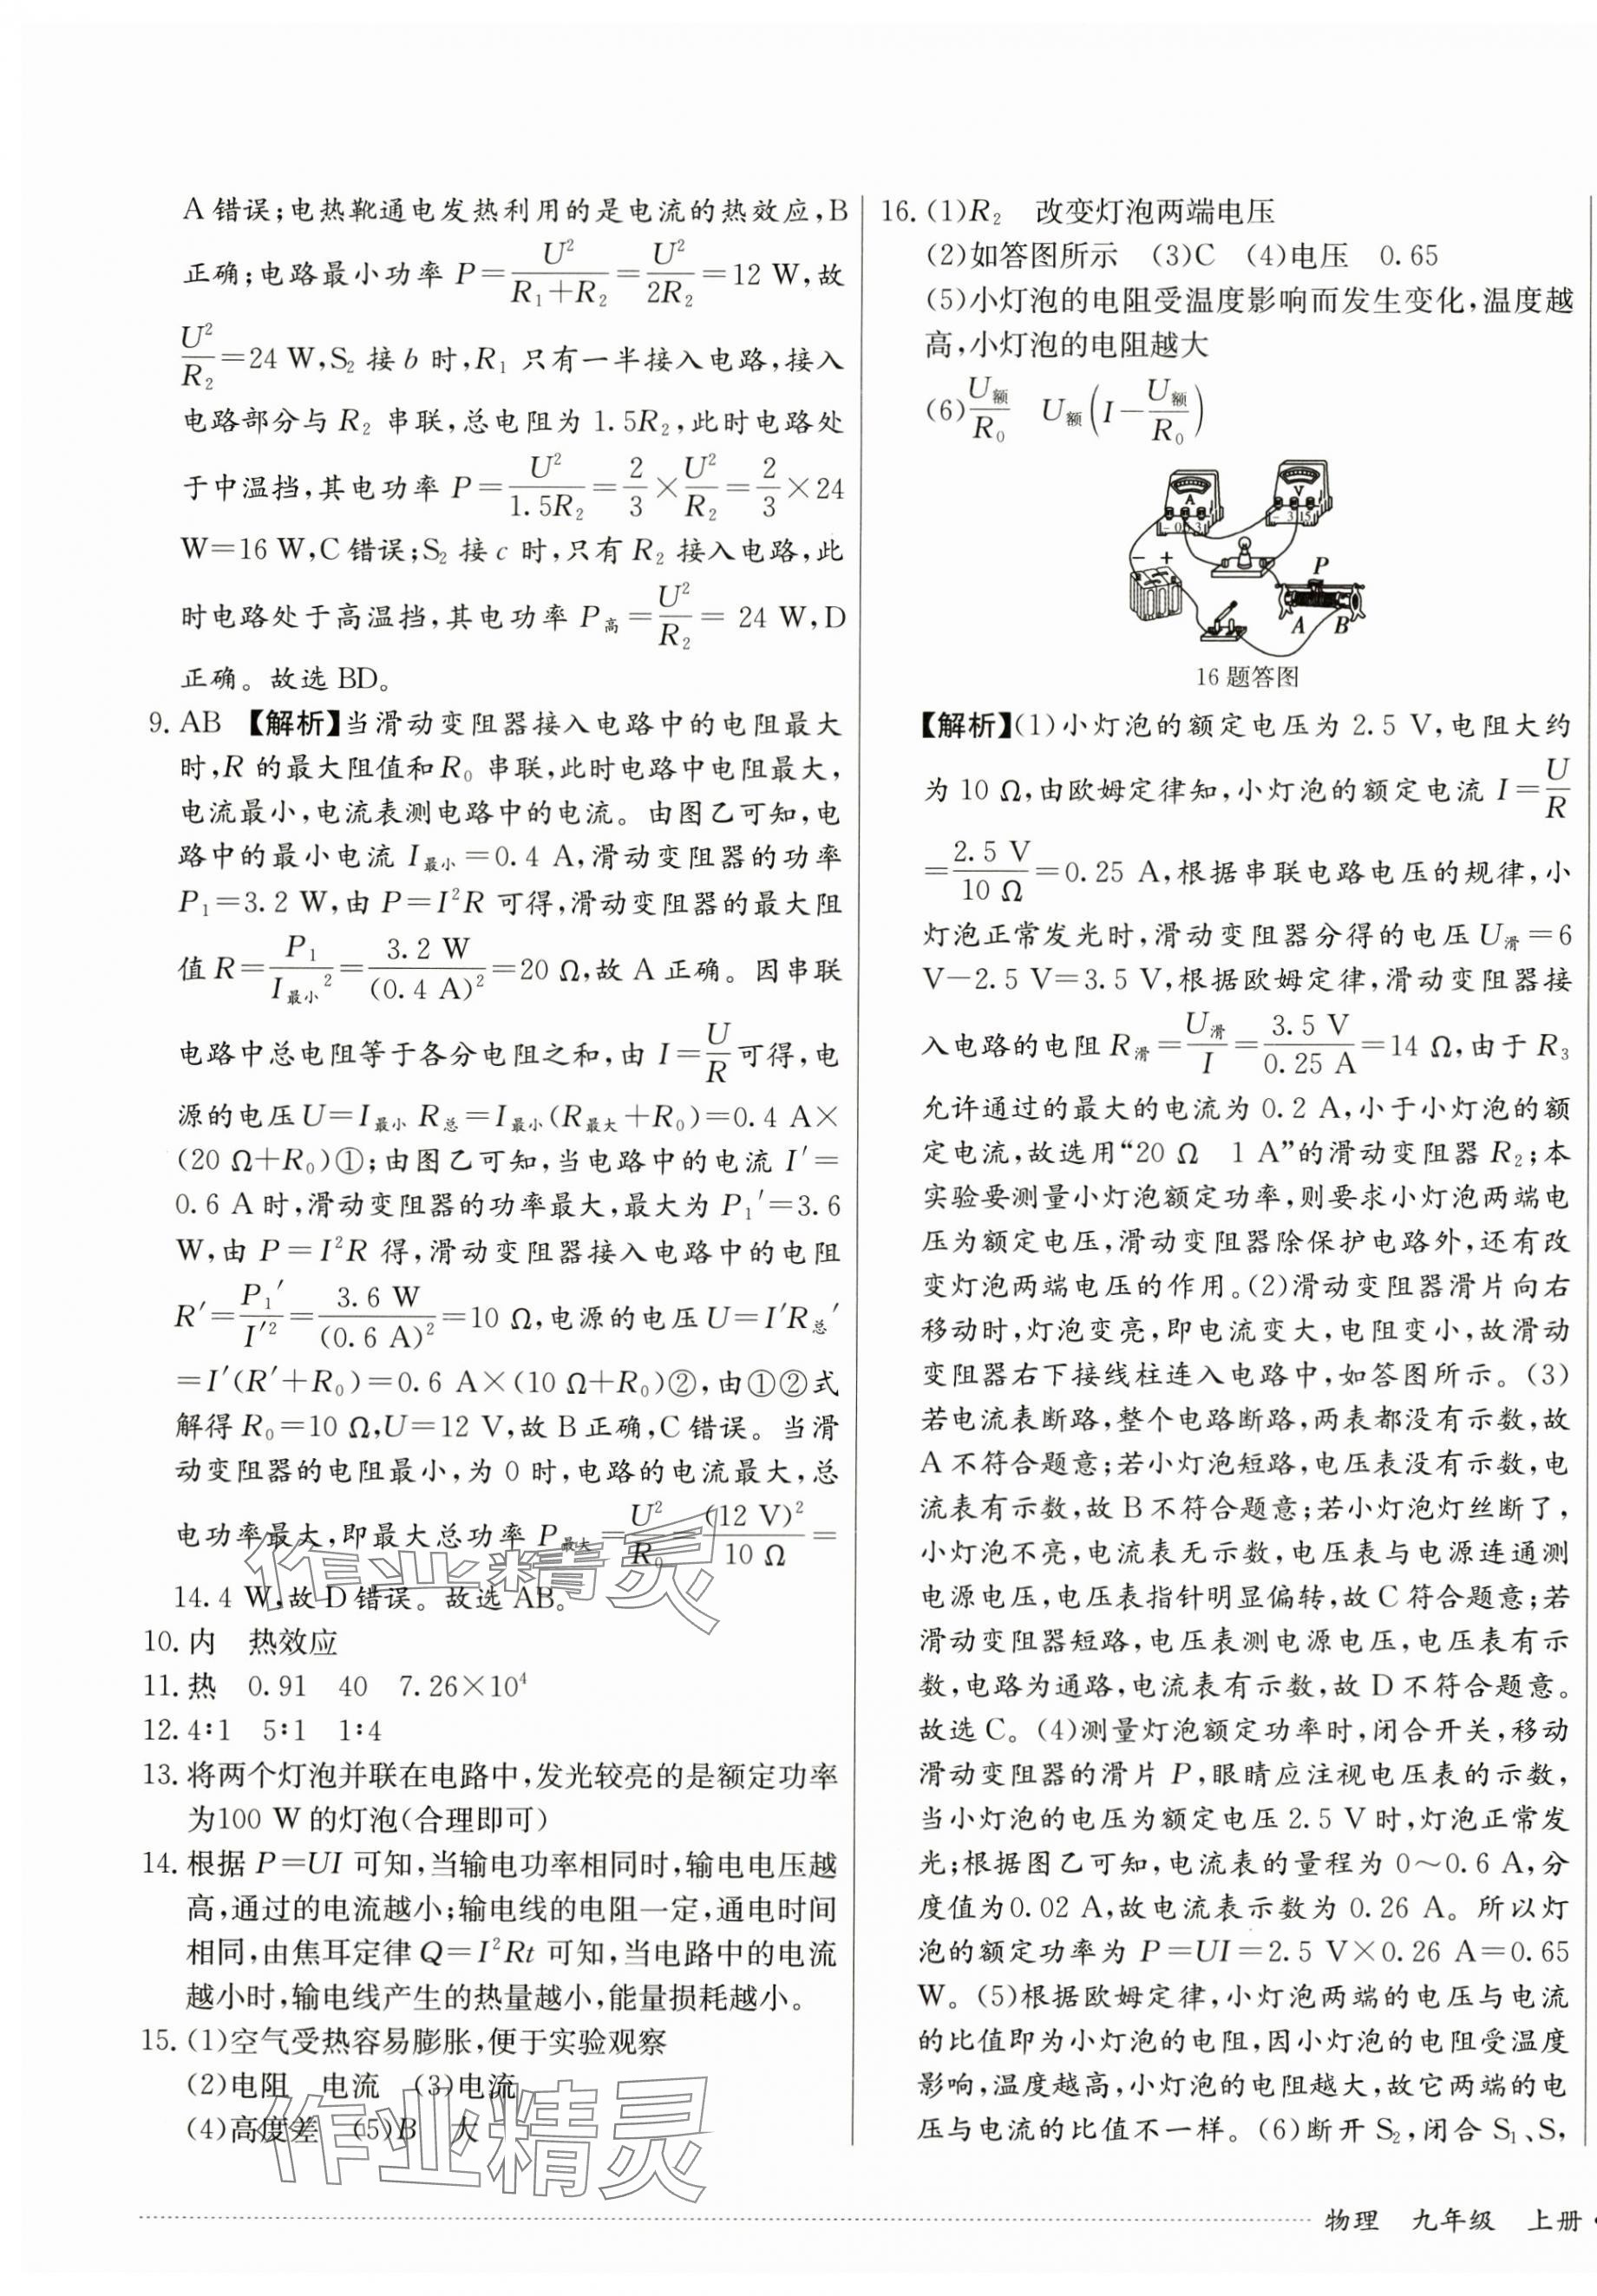 A错误;电热靴通电发热利用的是电流的热效应,B
正确;电路最小功率 P=U²/(R₁+R₂)=U²/(2R₂)=12 W,故
U²/R₂=24 W,S₂ 接 b 时,R₁ 只有一半接入电路,接入
电路部分与 R₂ 串联,总电阻为 1.5R₂,此时电路处
于中温挡,其电功率 P=U²/(1.5R₂)=2/3×U²/R₂=2/3×24
W=16 W,C错误;S₂ 接 c 时,只有 R₂ 接入电路,此
时电路处于高温挡,其电功率 P高=U²/R₂=24 W,D
正确。故选BD。
9. AB 【解析】当滑动变阻器接入电路中的电阻最大
时,R 的最大阻值和R₀ 串联,此时电路中电阻最大,
电流最小,电流表测电路中的电流。由图乙可知,电
路中的最小电流 I最小=0.4 A,滑动变阻器的功率
P₁=3.2 W,由 P=I²R 可得,滑动变阻器的最大阻
值 R=P₁/I最小²=3.2 W/(0.4 A)²=20 Ω,故A正确。因串联
电路中总电阻等于各分电阻之和,由 I=U/R 可得,电
源的电压U=I最小 R总=I最小(R最大+R₀)=0.4 A×
(20 Ω+R₀)①;由图乙可知,当电路中的电流 I′=
0.6 A时,滑动变阻器的功率最大,最大为 P₁′=3.6
W,由 P=I²R 得,滑动变阻器接入电路中的电阻
R′=P₁′/I′²=3.6 W/(0.6 A)²=10 Ω,电源的电压U=I′R总′
=I′(R′+R₀)=0.6 A×(10 Ω+R₀)②,由①②式
解得 R₀=10 Ω,U=12 V,故B正确,C错误。当滑
动变阻器的电阻最小,为 0 时,电路的电流最大,总
电功率最大,即最大总功率 P最大=U²/R₀=(12 V)²/10 Ω=
14.4 W,故D错误。故选AB。
10. 内 热效应
11. 热 0.91 40 7.26×10⁴
12. 4∶1 5∶1 1∶4
13. 将两个灯泡并联在电路中,发光较亮的是额定功率
为100 W的灯泡(合理即可)
14. 根据 P=UI 可知,当输电功率相同时,输电电压越
高,通过的电流越小;输电线的电阻一定,通电时间
相同,由焦耳定律 Q=I²Rt 可知,当电路中的电流
越小时,输电线产生的热量越小,能量损耗越小。
15. (1)空气受热容易膨胀,便于实验观察
(2)电阻 电流 (3)电流
(4)高度差 (5)B 大
作业精灵
作业精灵
16. (1)R₂ 改变灯泡两端电压
(2)如答图所示 (3)C (4)电压 0.65
(5)小灯泡的电阻受温度影响而发生变化,温度越
高,小灯泡的电阻越大
(6)U额/R₀ U额(I-U额/R₀)
A
V
- 0.6 3
- 3 15
- +
P
A B
16题答图
【解析】(1)小灯泡的额定电压为 2.5 V,电阻大约
为 10 Ω,由欧姆定律知,小灯泡的额定电流 I=U/R
=2.5 V/10 Ω=0.25 A,根据串联电路电压的规律,小
灯泡正常发光时,滑动变阻器分得的电压U滑=6
V-2.5 V=3.5 V,根据欧姆定律,滑动变阻器接
入电路的电阻 R滑=U滑/I=3.5 V/0.25 A=14 Ω,由于 R₃
允许通过的最大的电流为 0.2 A,小于小灯泡的额
定电流,故选用“20 Ω 1 A”的滑动变阻器 R₂;本
实验要测量小灯泡额定功率,则要求小灯泡两端电
压为额定电压,滑动变阻器除保护电路外,还有改
变灯泡两端电压的作用。(2)滑动变阻器滑片向右
移动时,灯泡变亮,即电流变大,电阻变小,故滑动
变阻器右下接线柱连入电路中,如答图所示。(3)
若电流表断路,整个电路断路,两表都没有示数,故
A不符合题意;若小灯泡短路,电压表没有示数,电
流表有示数,故B不符合题意;若小灯泡灯丝断了,
小灯泡不亮,电流表无示数,电压表与电源连通测
电源电压,电压表指针明显偏转,故C符合题意;若
滑动变阻器短路,电压表测电源电压,电压表有示
数,电路为通路,电流表有示数,故D不符合题意。
故选C。(4)测量灯泡额定功率时,闭合开关,移动
滑动变阻器的滑片 P,眼睛应注视电压表的示数,
当小灯泡的电压为额定电压2.5 V时,灯泡正常发
光;根据图乙可知,电流表的量程为 0～0.6 A,分
度值为0.02 A,故电流表示数为 0.26 A。所以灯
泡的额定功率为 P=UI=2.5 V×0.26 A=0.65
W。(5)根据欧姆定律,小灯泡两端的电压与电流
的比值即为小灯泡的电阻,因小灯泡的电阻受温度
影响,温度越高,小灯泡的电阻越大,故它两端的电
压与电流的比值不一样。(6)断开 S₂,闭合 S₁、S,
物理 九年级 上册·